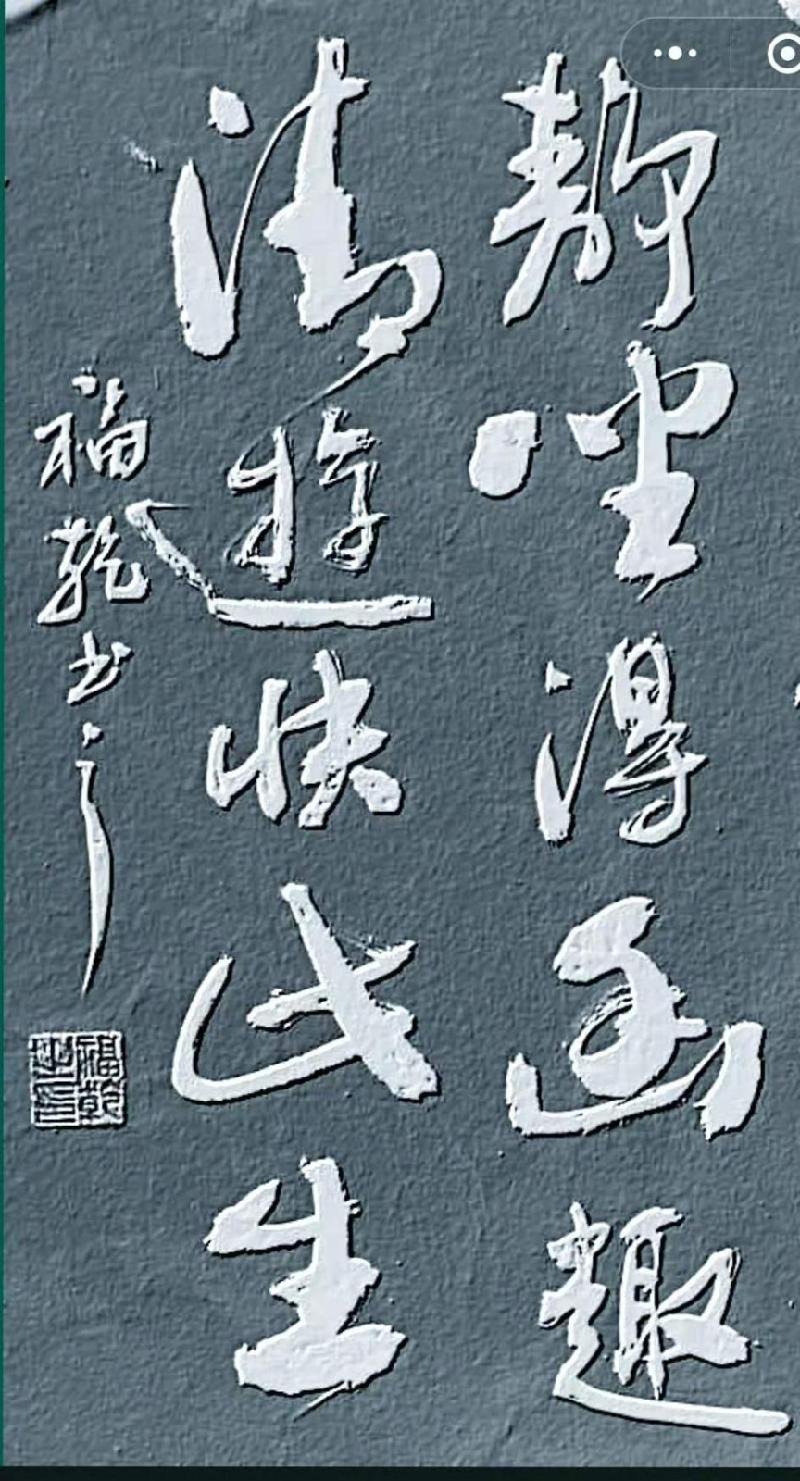 静坐得幽趣
清游快此生
福乾书
福乾之印